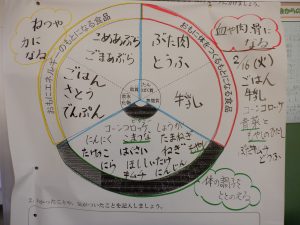 ねつや
力に
なる
おもにエネルギーのもとになる食品
ごめあぶら
ごまあぶら
ごはん
さとう
でんぷん
ぶた肉
とうふ
牛乳
おもに体をつくるもとになる食品
血や肉、骨に
なる
2/16(火)
ごはん
牛乳
コーンコロッケ
とうふ
コーンコロッケ しょうが
にんにく こまつな たまねぎ
たけのこ はくさい ねぎ もやし
にら ほししいたけ
キムチ にんじん
体の調子を
ととのえる
気がついたことを記入しましょう。